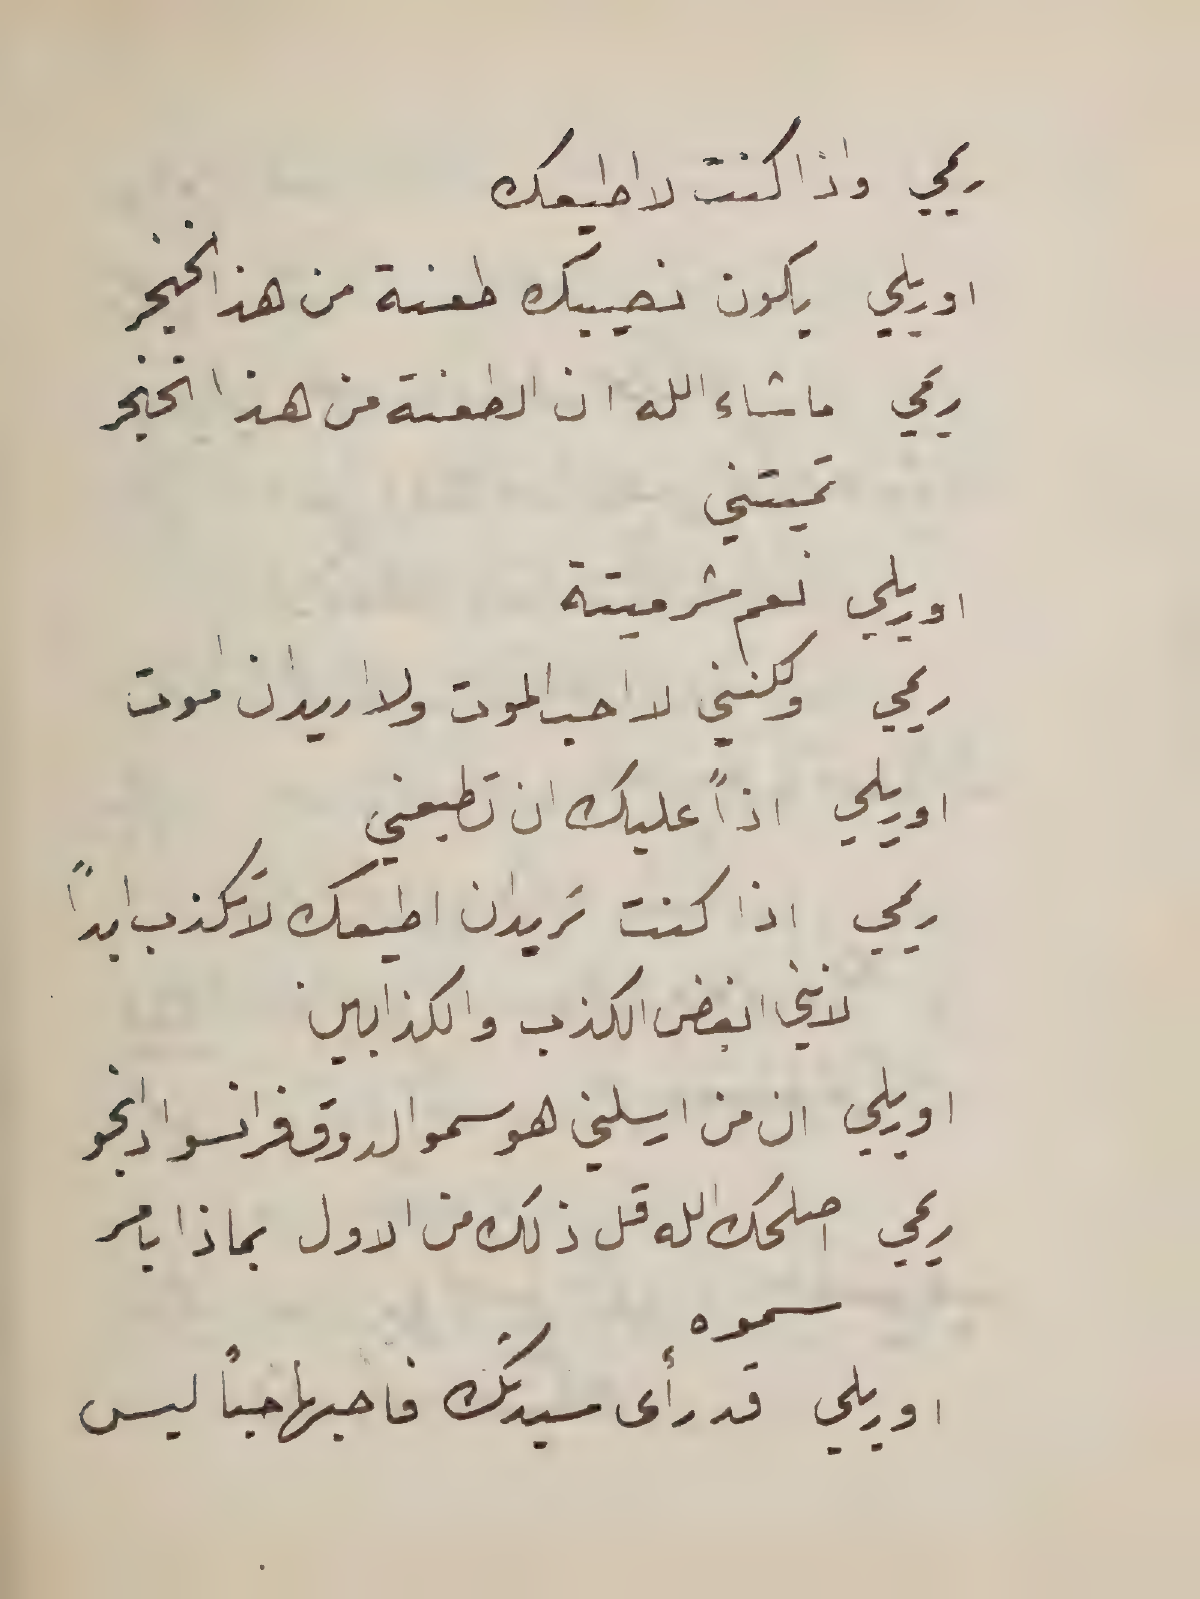 ريمي واذا كنت لا اطيعك
اوريلي يكون نصيبك طعنة من هذا الخنجر
ريمي ما شاء الله ان الطعنة من هذا الخنجر
تميتني
اوريلي نعم شر ميتة
ريمي ولكنني لا احب الموت ولا اريد ان اموت
اوريلي اذاً عليك ان تطيعني
ريمي اذا كنت تريد ان اطيعك لا تكذب ابداً
لانني ابغض الكذب والكذابين
اوريلي ان من ارسلني هو سمو الدوق فرانسوا دانجو
ريمي اصلحك الله قل ذلك من الاول بماذا يامر
سموه
اوريلي قد رأى سيدتك فاحبها حباً ليس